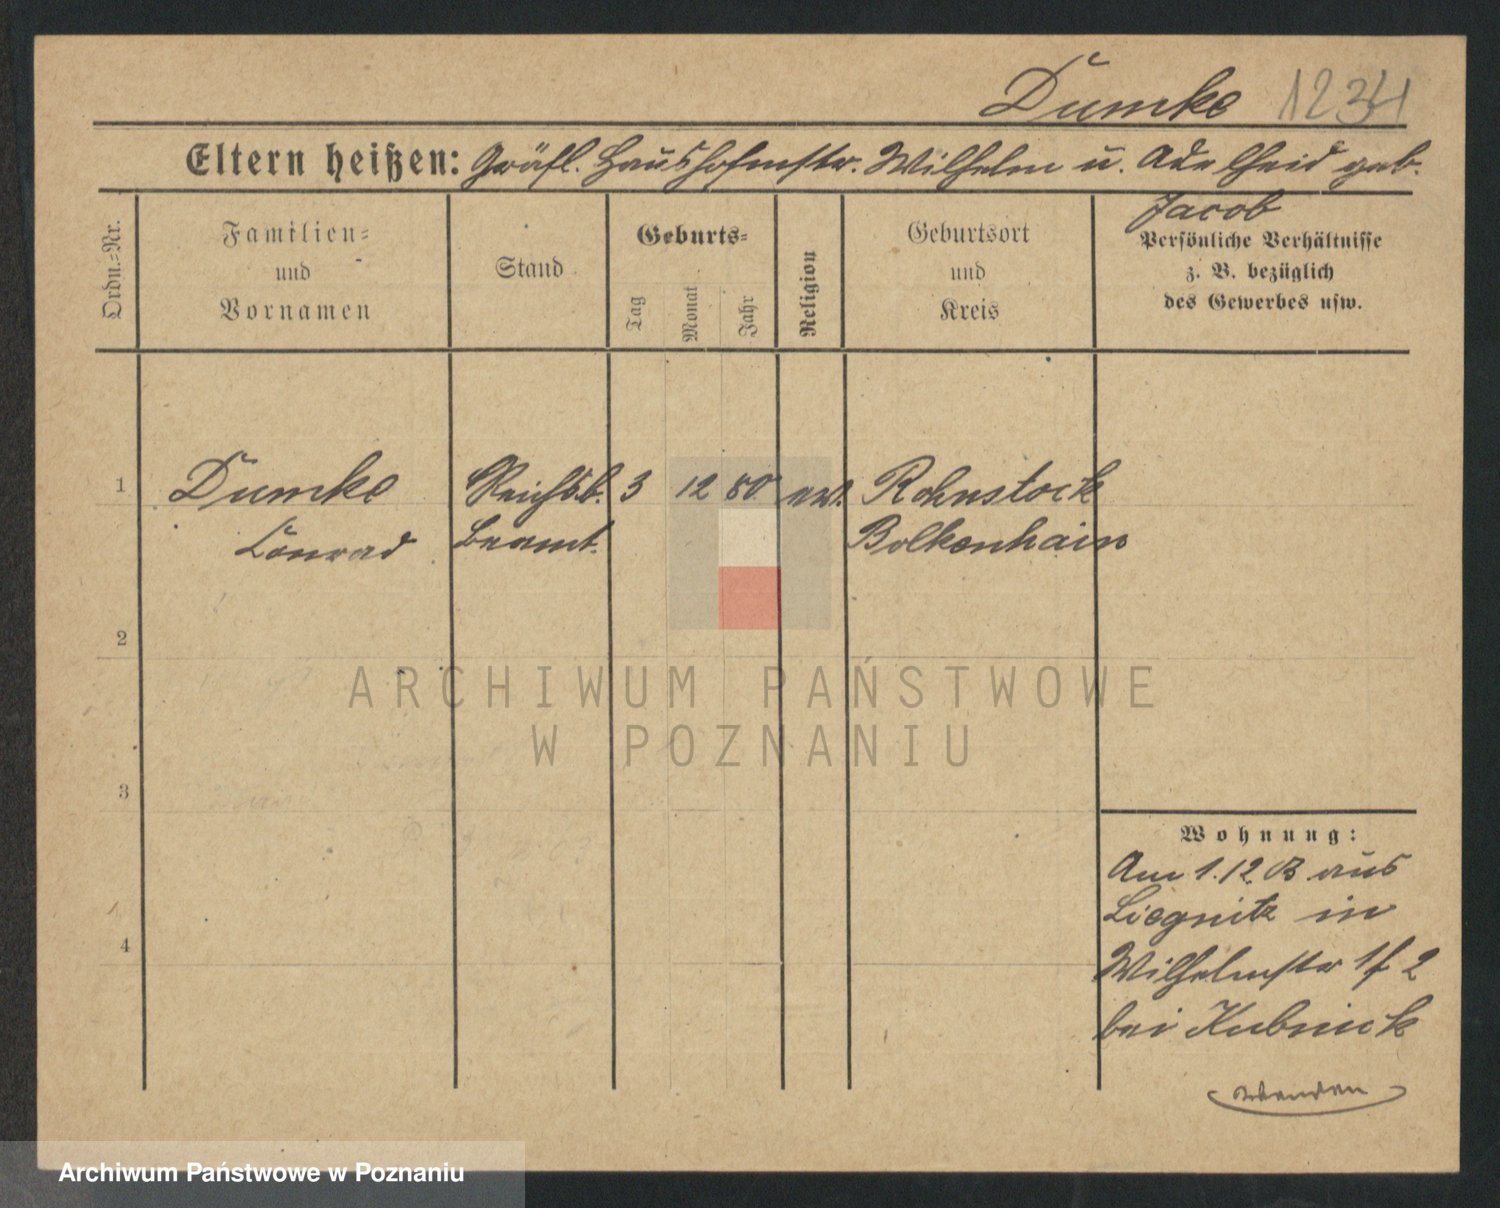 Dumke 1234
Eltern heißen: Gräfl. Haushofmstr. Wilhelm u. Adelheid geb.
Jacob
Ordn.-Nr.
Familien-
und
Vornamen
Stand
Geburts-
Tag
Monat
Jahr
Religion
Geburtsort
und
Kreis
Persönliche Verhältnisse
z. B. bezüglich
des Gewerbes usw.
1 Dumke Reichsb. 3 12 80 ev. Rohnstock
Conrad beamt. Bolkenhain
2
3
4
Wohnung:
Am 1.12.13 aus
Liegnitz in
Wilhelmstr 1f 2
bei Kubnick
ARCHIWUM PAŃSTWOWE
W POZNANIU
Archiwum Państwowe w Poznaniu